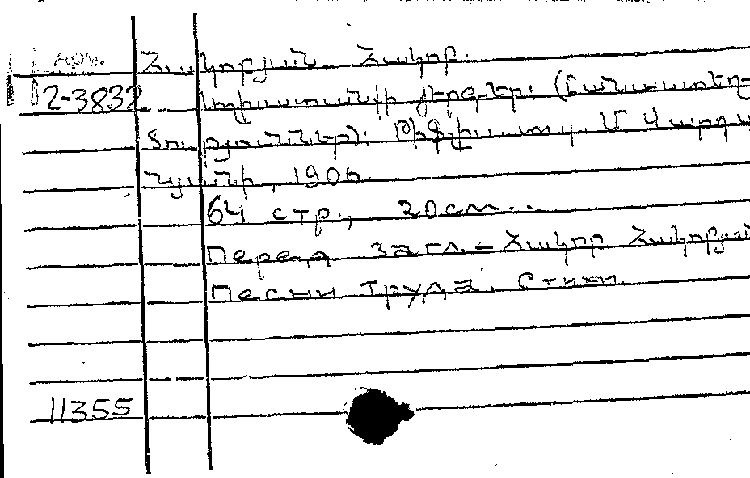 Арм.
2-3832
Հակոբյան Հակոբ.
Աշխատանքի երգեր: (Բանաստեղ-
ծություններ): Թիֆլիս, տպ. Մ. Վարդա
նյանի, 1906.
64 стр., 20см.
Перед загл.: Հակոբ Հակոբյան
Песни труда. Стихи.
11355